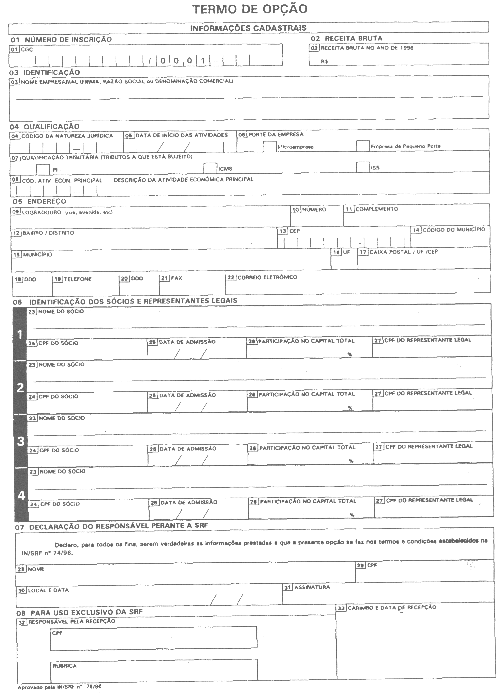 TERMO DE OPÇÃO
INFORMAÇÕES CADASTRAIS
01 NÚMERO DE INSCRIÇÃO
02 RECEITA BRUTA
01 CGC
/ 0 0 0 1
02 RECEITA BRUTA NO ANO DE 1996
R$
03 IDENTIFICAÇÃO
03 NOME EMPRESARIAL (FIRMA, RAZÃO SOCIAL ou DENOMINAÇÃO COMERCIAL)
04 QUALIFICAÇÃO
04 CÓDIGO DA NATUREZA JURÍDICA
05 DATA DE INÍCIO DAS ATIVIDADES
06 PORTE DA EMPRESA
Microempresa
Empresa de Pequeno Porte
07 QUALIFICAÇÃO TRIBUTÁRIA (TRIBUTOS A QUE ESTÁ SUJEITO)
IPI
ICMS
ISS
08 COD. ATIV. ECON. PRINCIPAL
DESCRIÇÃO DA ATIVIDADE ECONÔMICA PRINCIPAL
05 ENDEREÇO
09 LOGRADOURO (rua, avenida, etc)
10 NÚMERO
11 COMPLEMENTO
12 BAIRRO / DISTRITO
13 CEP
14 CÓDIGO DO MUNICÍPIO
15 MUNICÍPIO
16 UF
17 CAIXA POSTAL / UF /CEP
18 DDD
19 TELEFONE
20 DDD
21 FAX
22 CORREIO ELETRÔNICO
06 IDENTIFICAÇÃO DOS SÓCIOS E REPRESENTANTES LEGAIS
1
23 NOME DO SÓCIO
24 CPF DO SÓCIO
25 DATA DE ADMISSÃO
26 PARTICIPAÇÃO NO CAPITAL TOTAL
%
27 CPF DO REPRESENTANTE LEGAL
2
23 NOME DO SÓCIO
24 CPF DO SÓCIO
25 DATA DE ADMISSÃO
26 PARTICIPAÇÃO NO CAPITAL TOTAL
%
27 CPF DO REPRESENTANTE LEGAL
3
23 NOME DO SÓCIO
24 CPF DO SÓCIO
25 DATA DE ADMISSÃO
26 PARTICIPAÇÃO NO CAPITAL TOTAL
%
27 CPF DO REPRESENTANTE LEGAL
4
23 NOME DO SÓCIO
24 CPF DO SÓCIO
25 DATA DE ADMISSÃO
26 PARTICIPAÇÃO NO CAPITAL TOTAL
%
27 CPF DO REPRESENTANTE LEGAL
07 DECLARAÇÃO DO RESPONSÁVEL PERANTE A SRF
Declaro, para todos os fins, serem verdadeiras as informações prestadas e que a presente opção se faz nos termos e condições estabelecidos na
IN/SRF nº 74/96.
28 NOME
29 CPF
30 LOCAL E DATA
31 ASSINATURA
08 PARA USO EXCLUSIVO DA SRF
32 RESPONSÁVEL PELA RECEPÇÃO
33 CARIMBO E DATA DE RECEPÇÃO
CPF
RÚBRICA
Aprovado pela IN/SRF nº 74/96